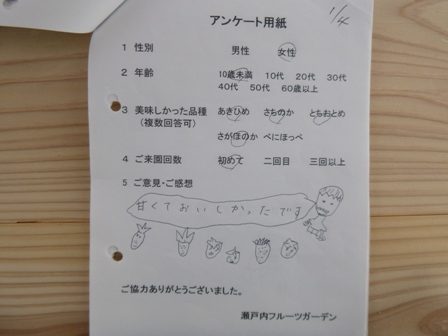 1/4
アンケート用紙
1 性別 男性 女性
2 年齢 10歳未満 10代 20代 30代
40代 50代 60歳以上
3 美味しかった品種 あきひめ さちのか とちおとめ
(複数回答可)
さがほのか べにほっぺ
4 ご来園回数 初めて 二回目 三回以上
5 ご意見・ご感想
甘くておいしかったです
ご協力ありがとうございました。
瀬戸内フルーツガーデン